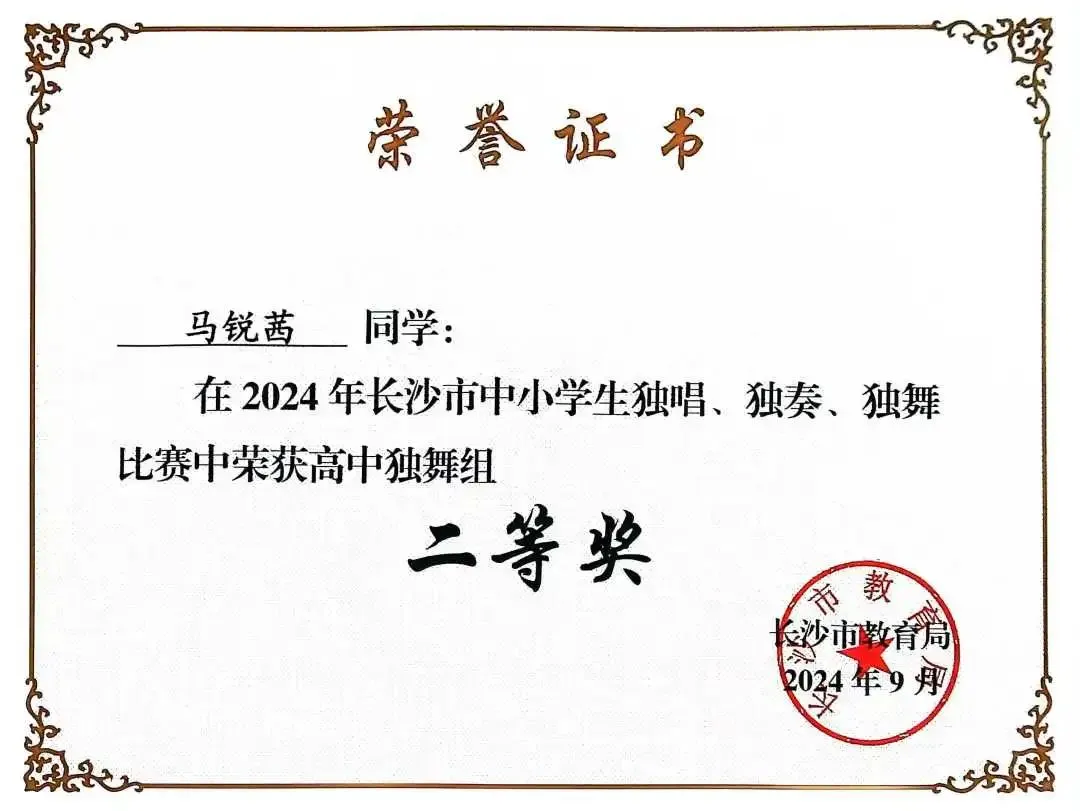 荣誉证书
马锐茜 同学：
在2024年长沙市中小学生独唱、独奏、独舞
比赛中荣获高中独舞组
二等奖
长沙市教育局
2024年9月
长沙市教育局